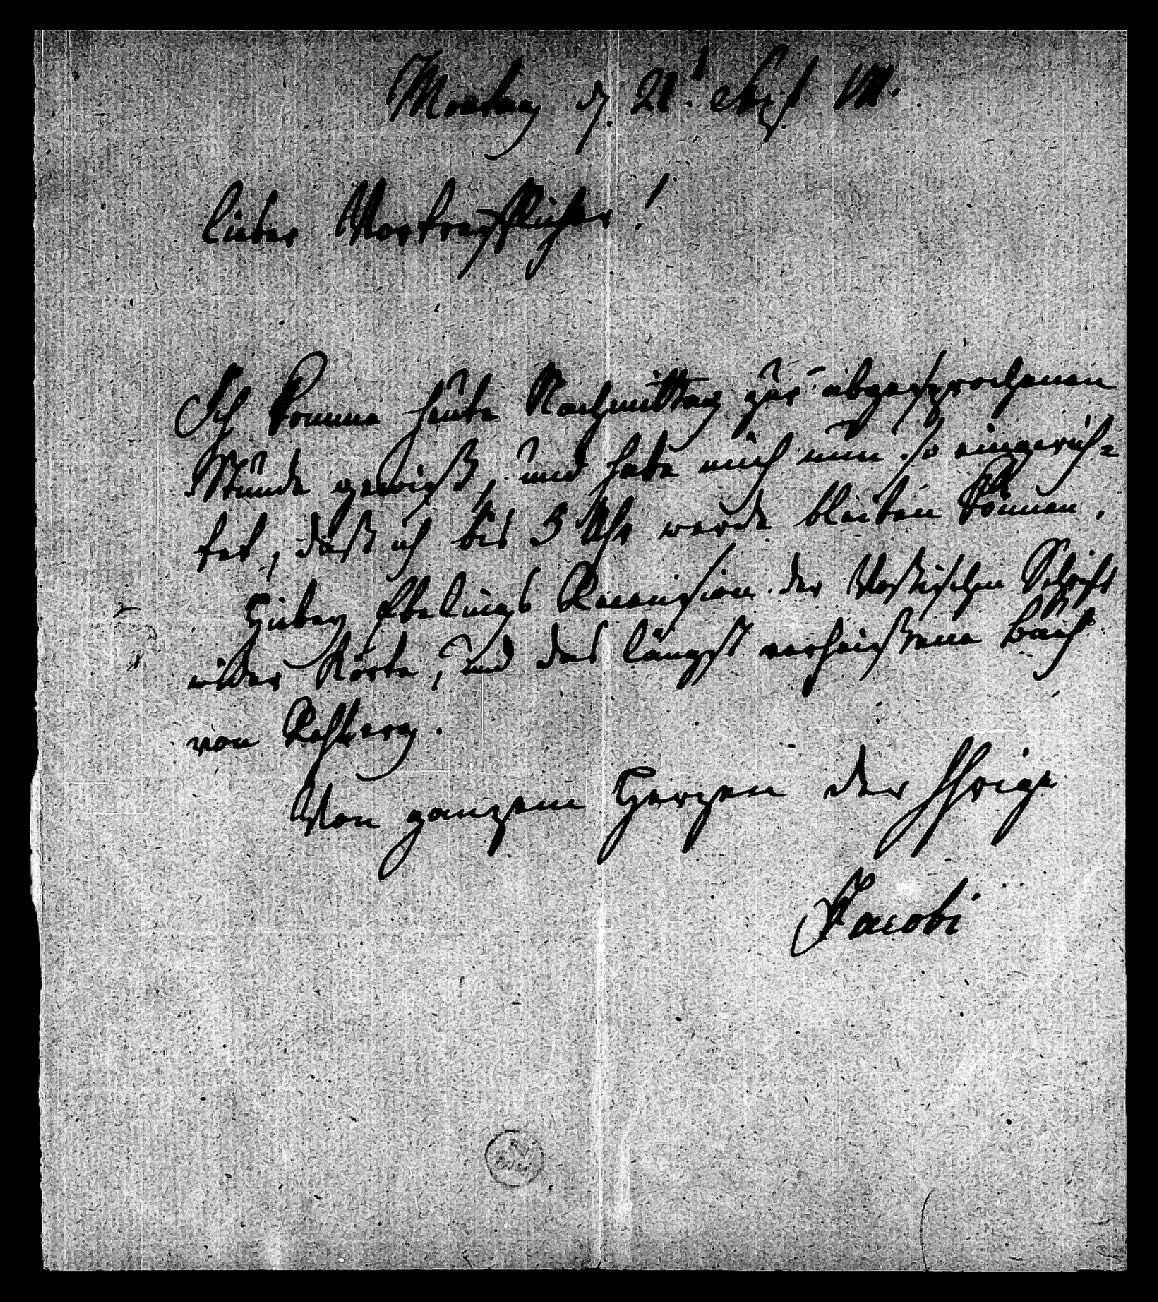 Montag d. 21t. Sept M.
lieber Vortrefflicher!
Ich komme heute Nachmittag zur abgesprochenen
Stunde gewiß, und habe mich nun so eingerich=
tet, daß ich bis 5 Uhr werde bleiben können.
Hiebey Ebelings Recension der Voßischen Schrift
wider Körte, und das längst verheißene Buch
von Rehberg.
Von ganzem Herzen der Ihrige
Jacobi